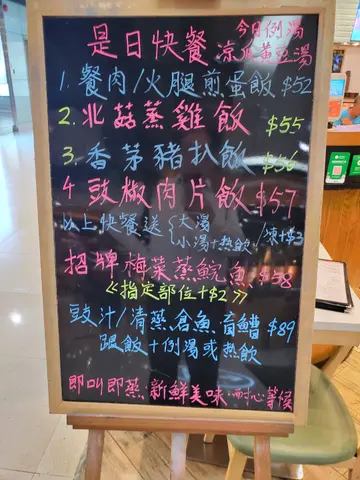 是日快餐
今日例湯
涼瓜黃豆湯
1. 餐肉/火腿煎蛋飯 $52
2. 北菇蒸雞飯 $55
3. 香茅豬扒飯 $56
4 豉椒肉片飯 $57
以上快餐送{大湯
小湯+熱飲/凍+$3
招牌梅菜蒸鯇魚 $58
《指定部位+$2》
豉汁/清蒸倉魚.盲鰽 $89
跟飯+例湯或熱飲
即叫即蒸.新鮮美味.耐心等候